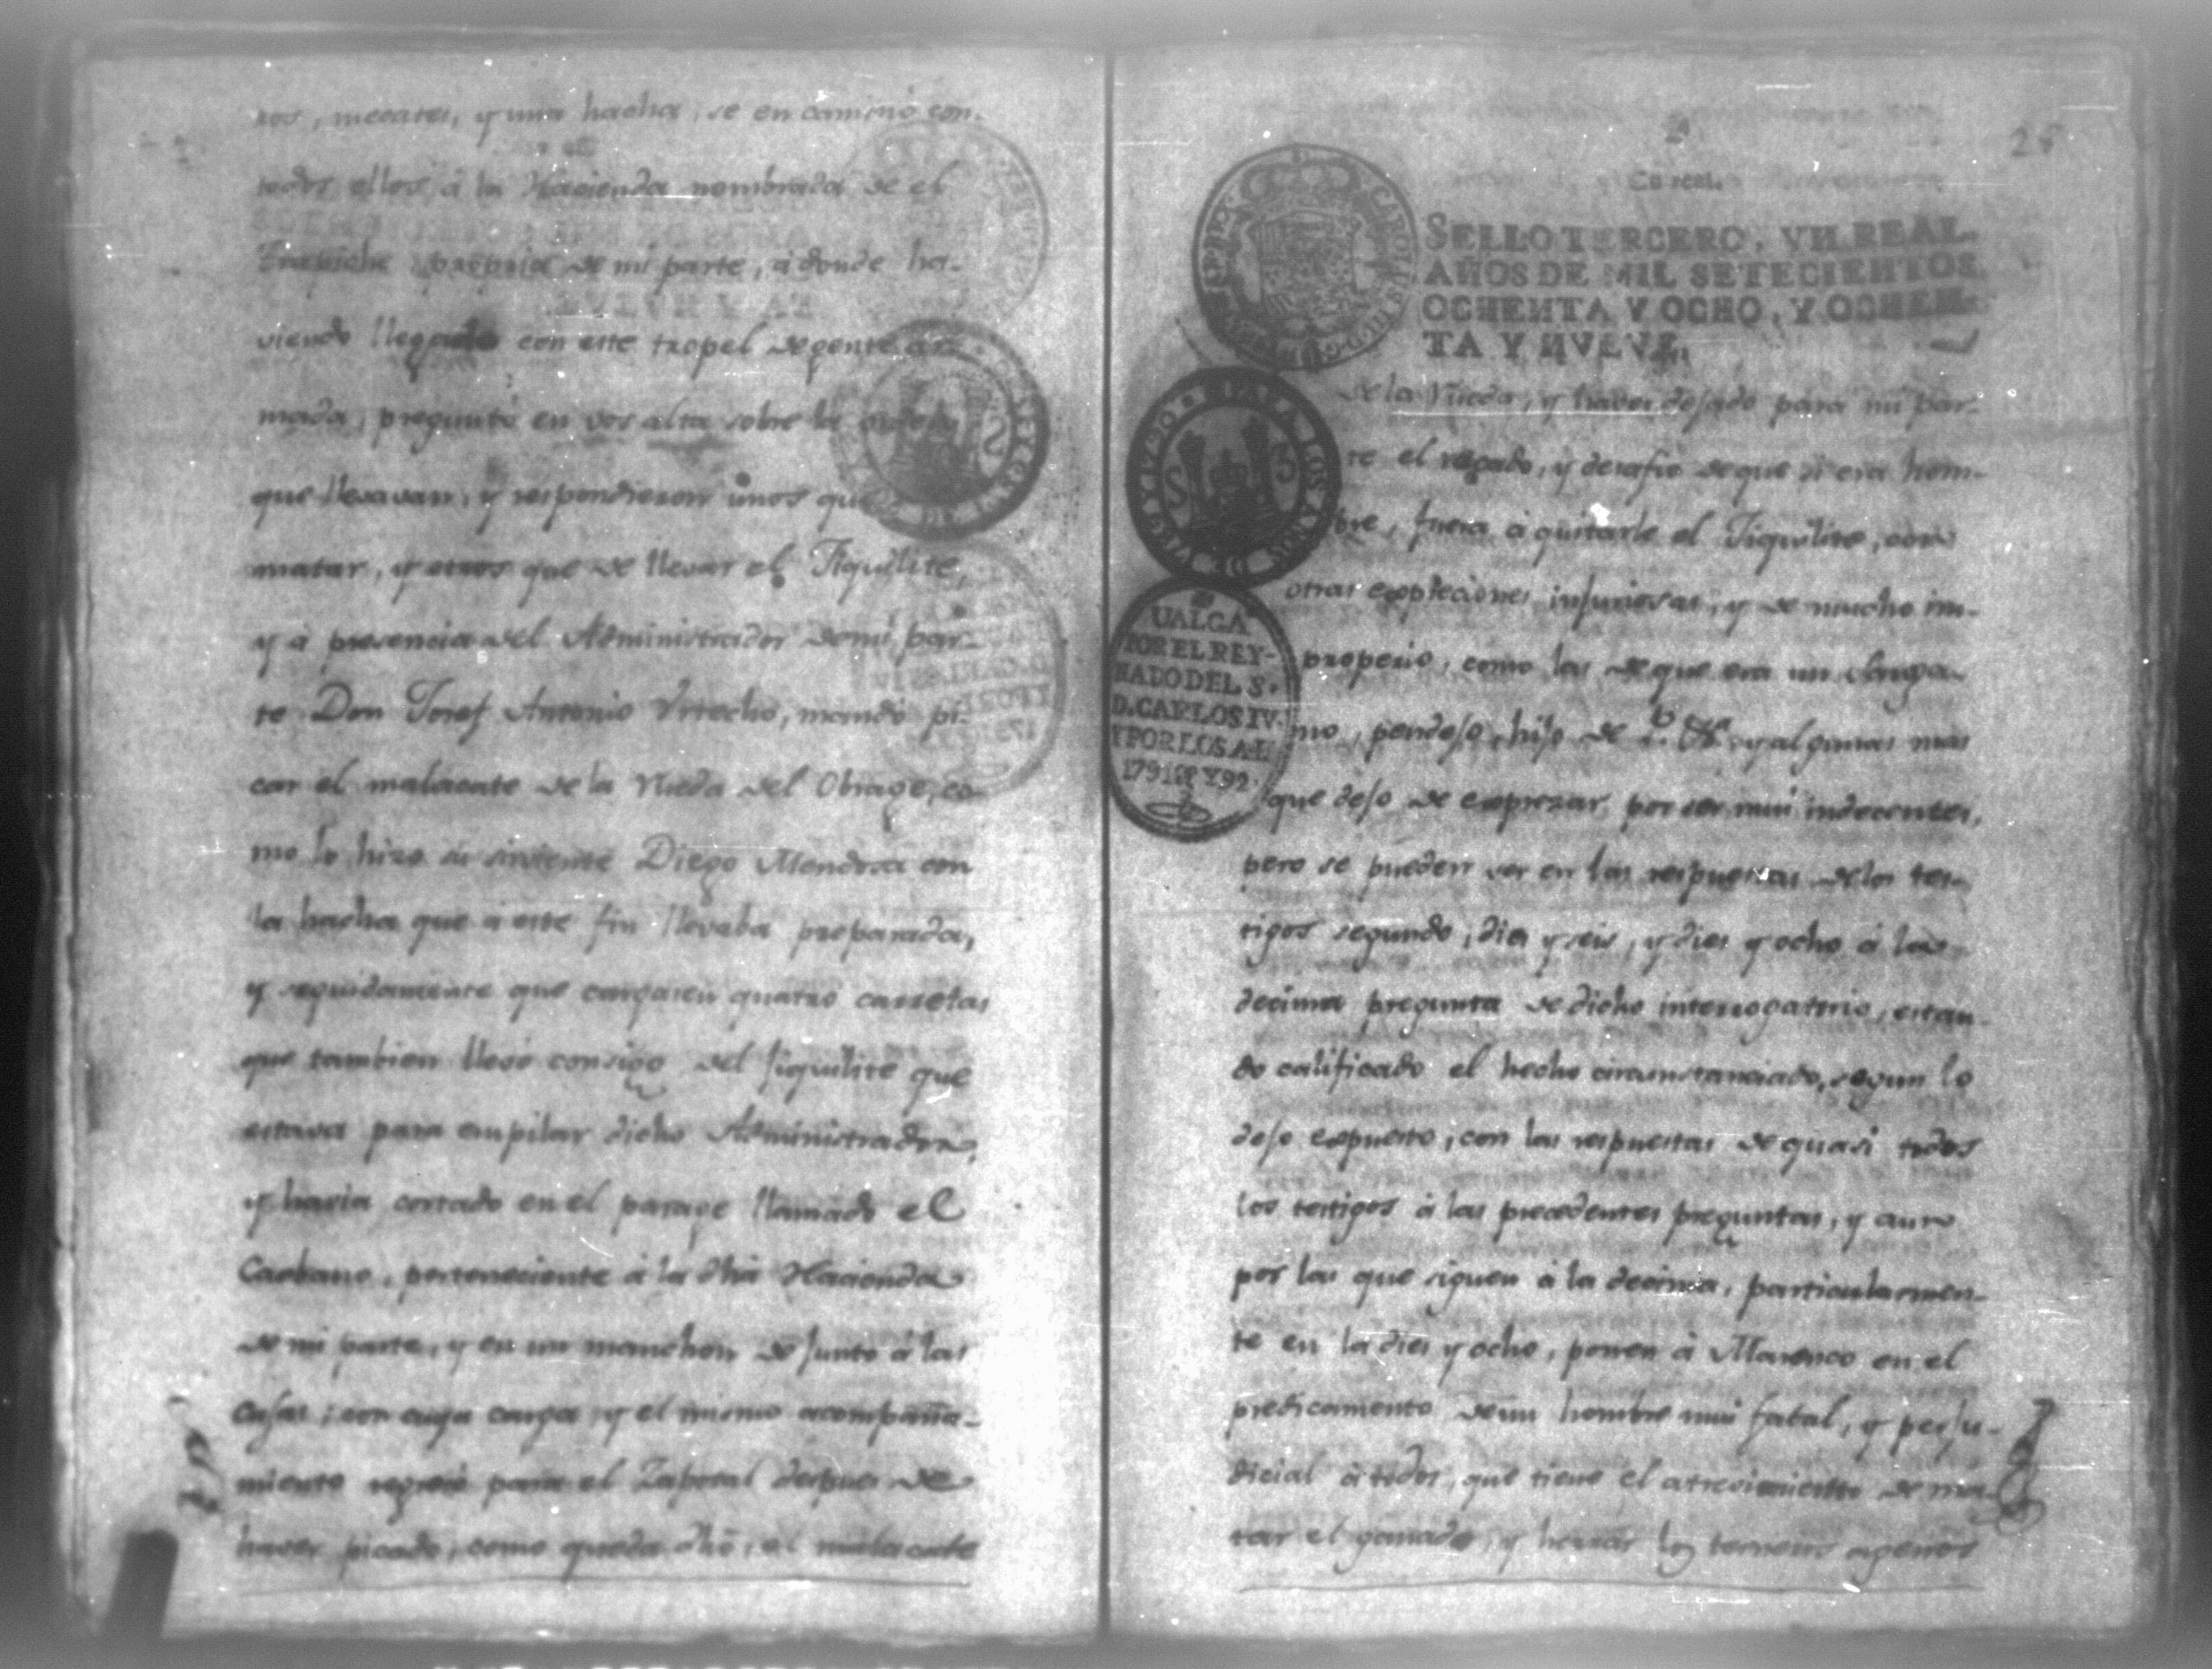 ros, mecates, y una hacha, se encaminó con
todos ellos á la Hacienda nombrada de el
Trapiche propria de mi parte, á donde ha-
viendo llegado con este tropel de gente ar-
mada, preguntó en vos alta sobre la orden
que llevavan, y respondieron unos que
matar, y otros que de llevar el Tiquilite,
y á presencia del Administrador de mi par-
te Don Josef Antonio Vrrecho, mandó pi-
car el malacate de la Rueda del Obrage, co-
mo lo hizo su sirviente Diego Mendosa con
la hacha que á este fin llevaba preparada,
y seguidamente que cargasen quatro carretas
que tambien llevó consigo del Jiquilite que
estava para empilar dicho Administrador,
y havia cortado en el parage llamado el
Caobano, perteneciente á la dha Hacienda
de mi parte, y en un manchon de junto á las
casas; con cuya carga, y el mismo acompaña-
miento regresó para el Zaposal despues de
haver picado, como queda dho, el malacate
28
Un real.
SELLO TERCERO, VN REAL.
AÑOS DE MIL SETECIENTOS
OCHENTA Y OCHO, Y OCHEN-
TA Y NVEVE.
de la Rueda, y haver dejado para mi par-
te el recado, y desafio de que si era hom-
bre, fuera á quitarle el Tiquilite, con
otras expreciones injuriosas, y de mucho im-
properio, como las de que era un
mo, pendejo, hijo de y algunas mas
que dejo de exprezar por ser mui indecentes,
pero se pueden ver en las respuestas de los tes-
tigos segundo, dies y seis, y dies y ocho á las
decima pregunta de dicho interrogatorio, estan-
do calificado el hecho circunstanciado, segun lo
dejo expuesto, con las respuestas de quasi todos
los testigos á las precedentes preguntas, y aun
por las que siguen á la decima, particularmen-
te en la dies y ocho, ponen á Marenco en el
predicamento de un hombre mui fatal, y perju-
dicial á todos, que tiene el atrevimiento de ma-
tar el ganado, y herrar los terneros agenos
PARA LOS AÑOS DE 1790 Y 1791
S S
UALGA
POR EL REY-
NADO DEL S.
D. CARLOS IV.
Y POR LOS A. D
1791 Y 92.